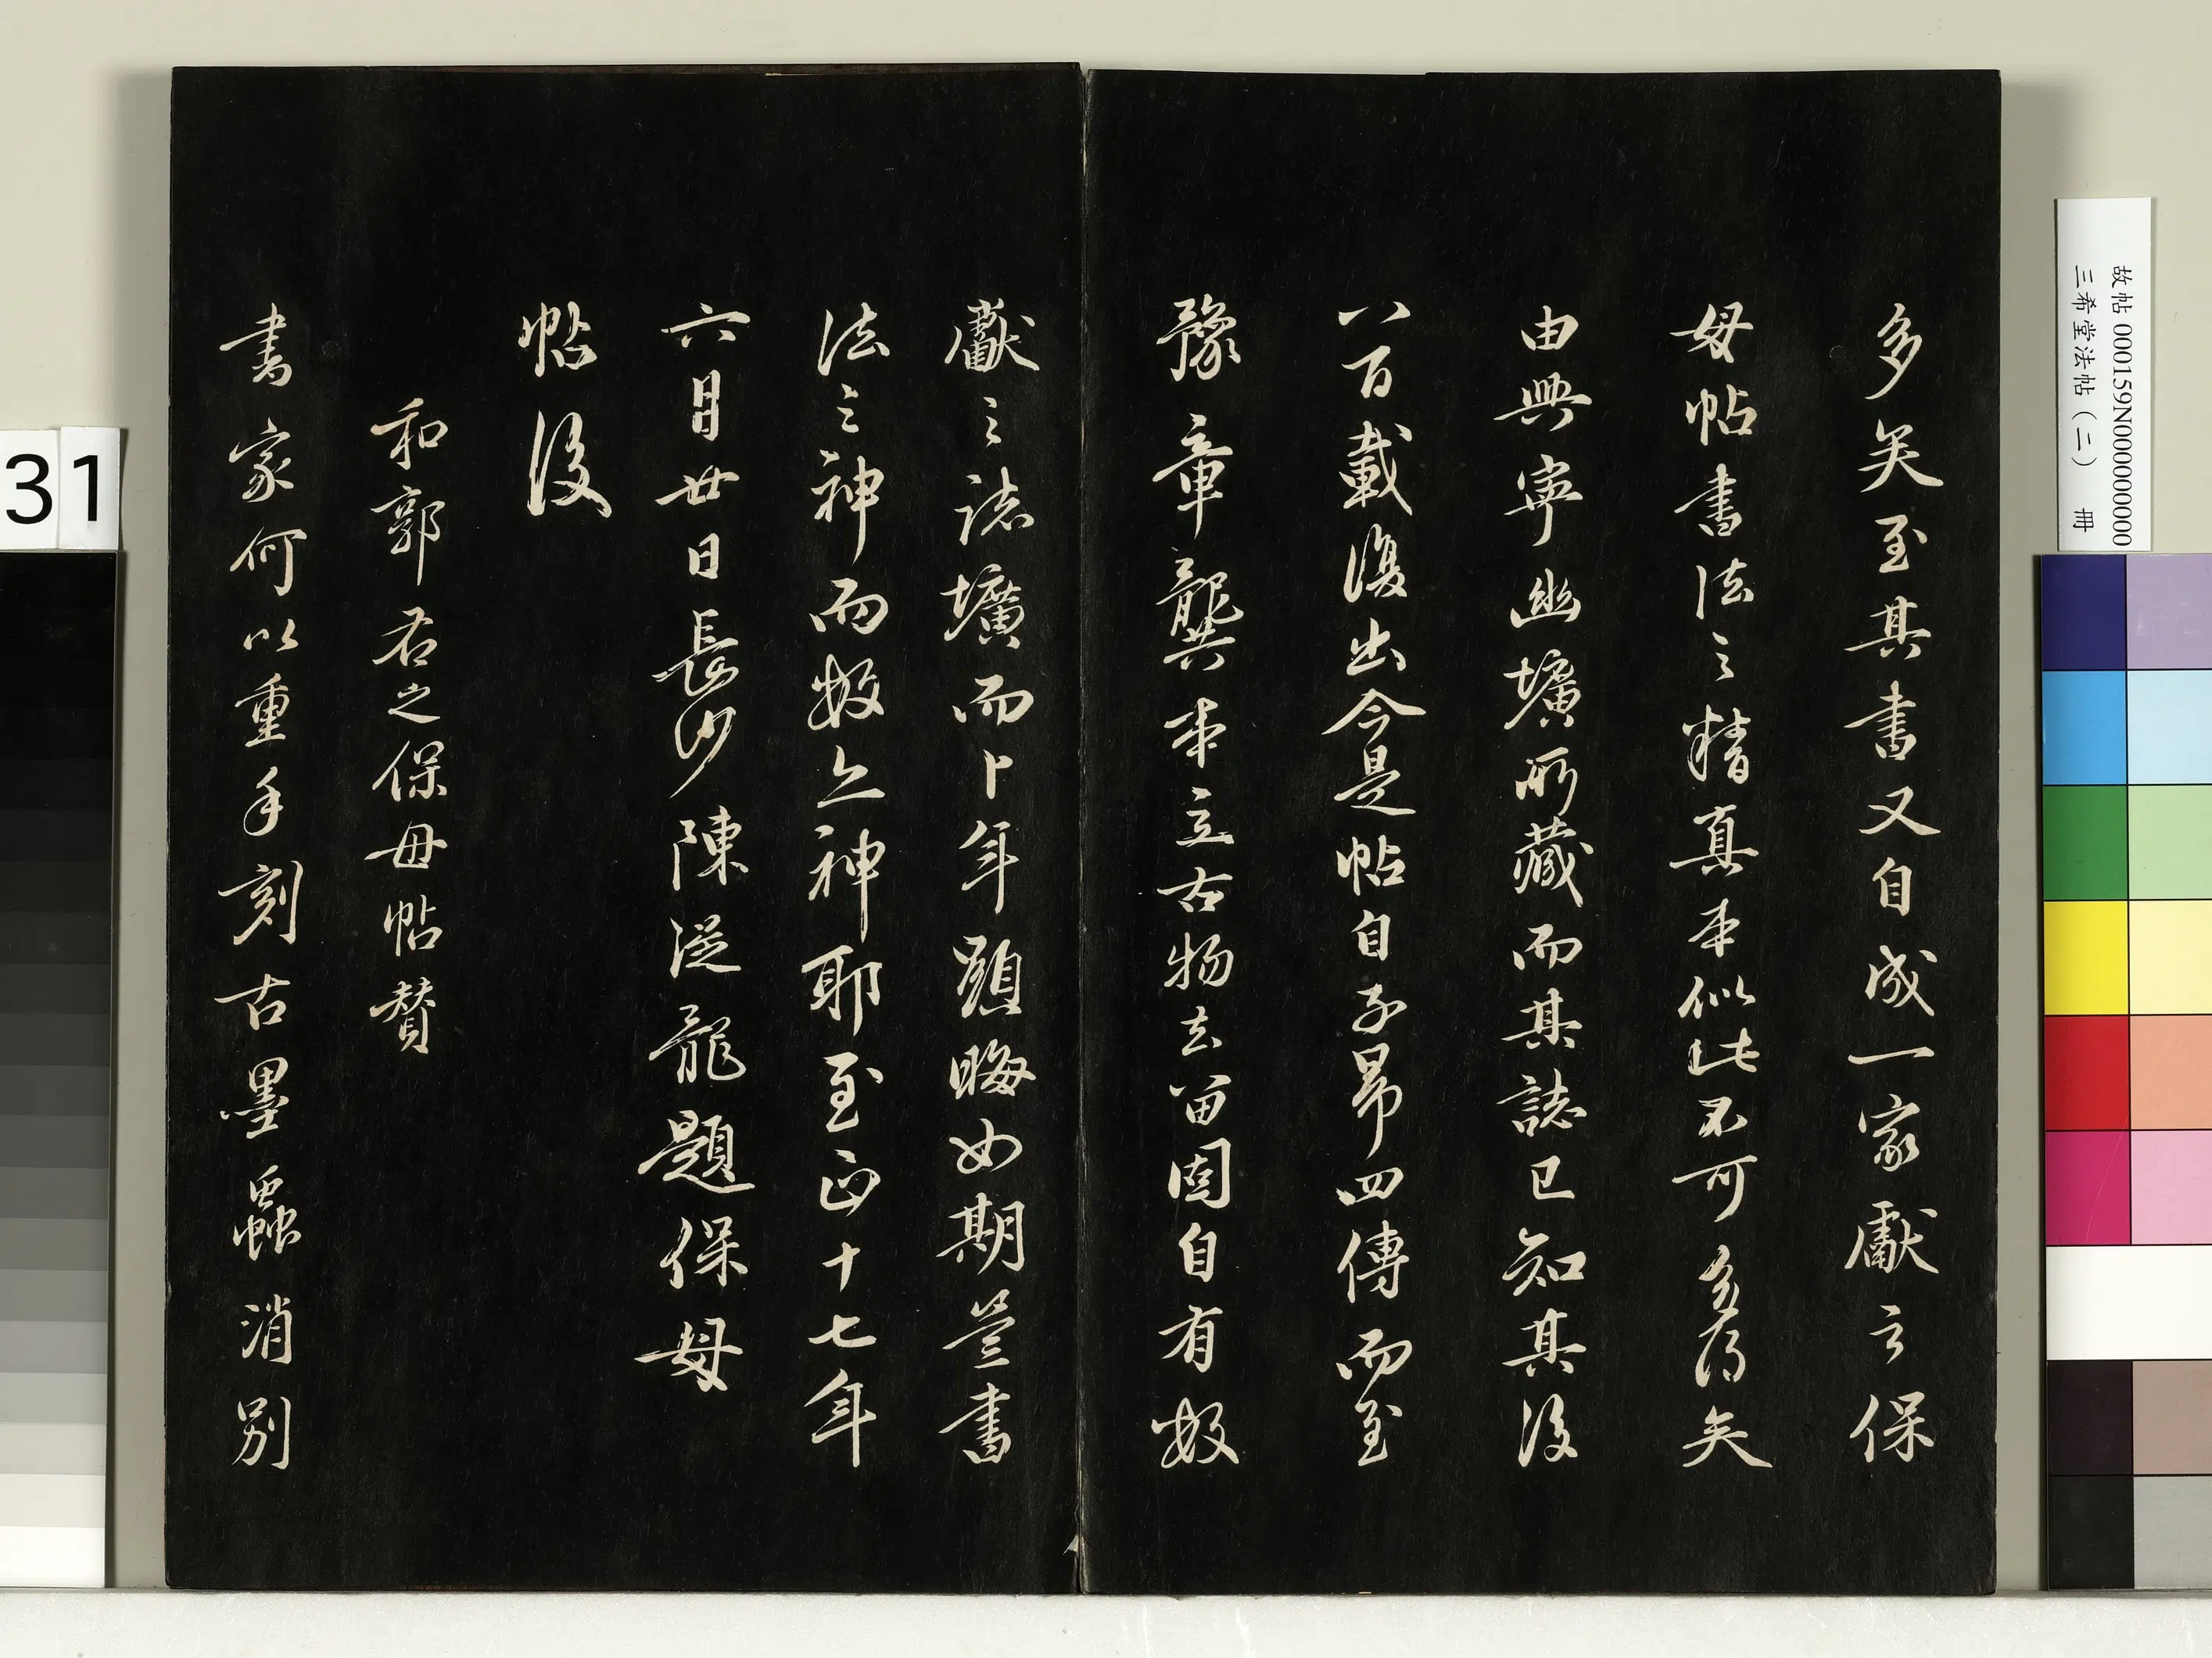 多矣至其書又自成一家獻之保
母帖書法之精真本似此不可多得矣
由興寧幽壙所藏而其誌已知其後
八百載復出今是帖自子昂四傳而至
豫章龔本立古物去留固自有數
獻之誌壙而卜年顯晦如期豈書
法之神而數亦神耶至正十七年
六月廿日長沙陳從龍題保母
帖後
和郭右之保母帖贊
書家何以重手刻古墨蟲消別
故帖 000159N000000000
三希堂法帖(二) 冊
31